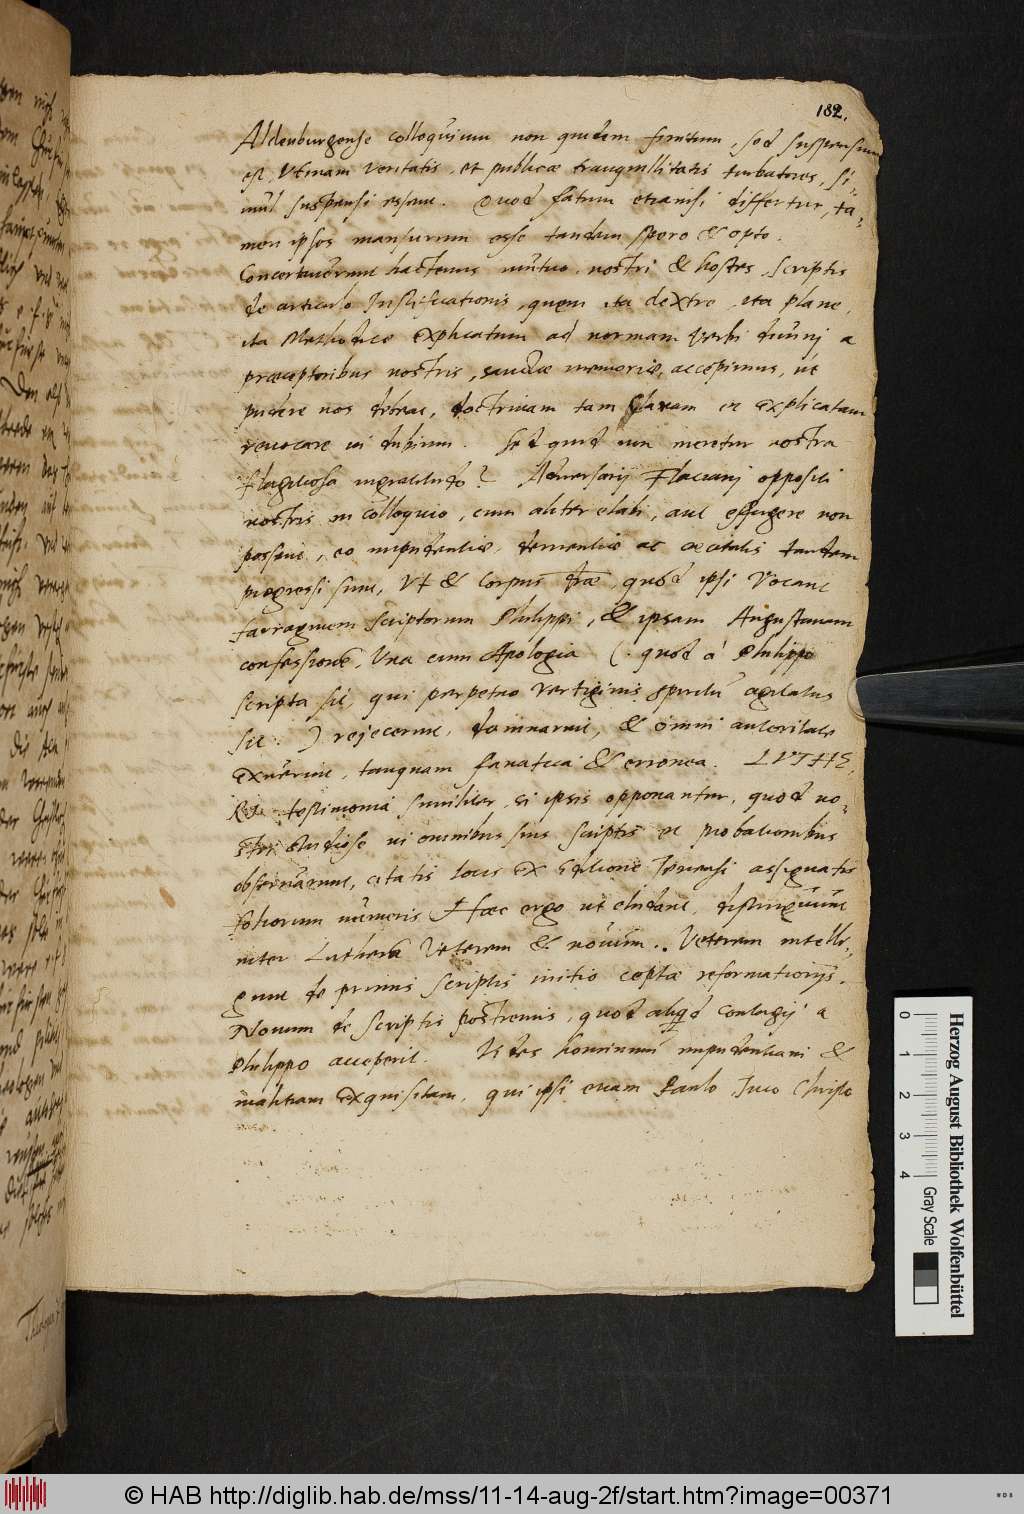 182.
Aldenburgense colloquium non quidem finitum, sed suspensum
est, Utinam veritatis, et publicae tranquillitatis turbatores, si-
mul suspensi essent. Quod fatum etiamsi differtur, ta-
men ipsos mansurum esse tandem spero & opto.
Concertaverunt hactenus mutuo nostri & hostes, scriptis
de articulo Iustificationis, quem ita dextre, ita plane,
ita Methodice explicatum ad normam Verbi divinj a
praeceptoribus nostris, sanctae memoriae, accepimus, ut
pudere nos debeat, doctrinam tam claram et explicatam
revocare in dubium. Sed quid non meretur nostra
flagitiosa ingratitudo? Adversarij Flacianj oppositi
nostris in colloquio, cum aliter elabi, aut effugere non
possent, eo impudentiae, dementiae ac caecitatis tandem
progressi sunt, Ut & Corpus doctrinae, quod ipsi vocant
farraginem scriptorum Philippi, & ipsam Augustanam
confessionem, Una cum Apologia (quod à Philippo
scripta sit, qui perpetuo vertiginis spiritu agitatus
sit.) rejecerint, damnarint, & omni autoritate
exuerint, tanquam fanatica & erronea. LVTHE-
RI testimonia similiter, si ipsis opponantur, quod no-
stri studiose in omnibus suis scriptis et probationibus
observarunt, citatis locis ex editione Jenensi assignatis
foliorum numeris Haec ergo ut eludant, distinguunt
inter Lutherum Veterem & novum. Veterem intelli-
gunt de primis scriptis initio coeptae reformationis.
Novum de scriptis postremis, quod aliquid contagij a
Philippo acceperit. Vides hominum impudentiam &
malitiam exquisitam, qui ipsi etiam Paulo, Imo Christo
Herzog August Bibliothek Wolfenbüttel
Gray Scale
0 1 2 3 4
© HAB http://diglib.hab.de/mss/11-14-aug-2f/start.htm?image=00371